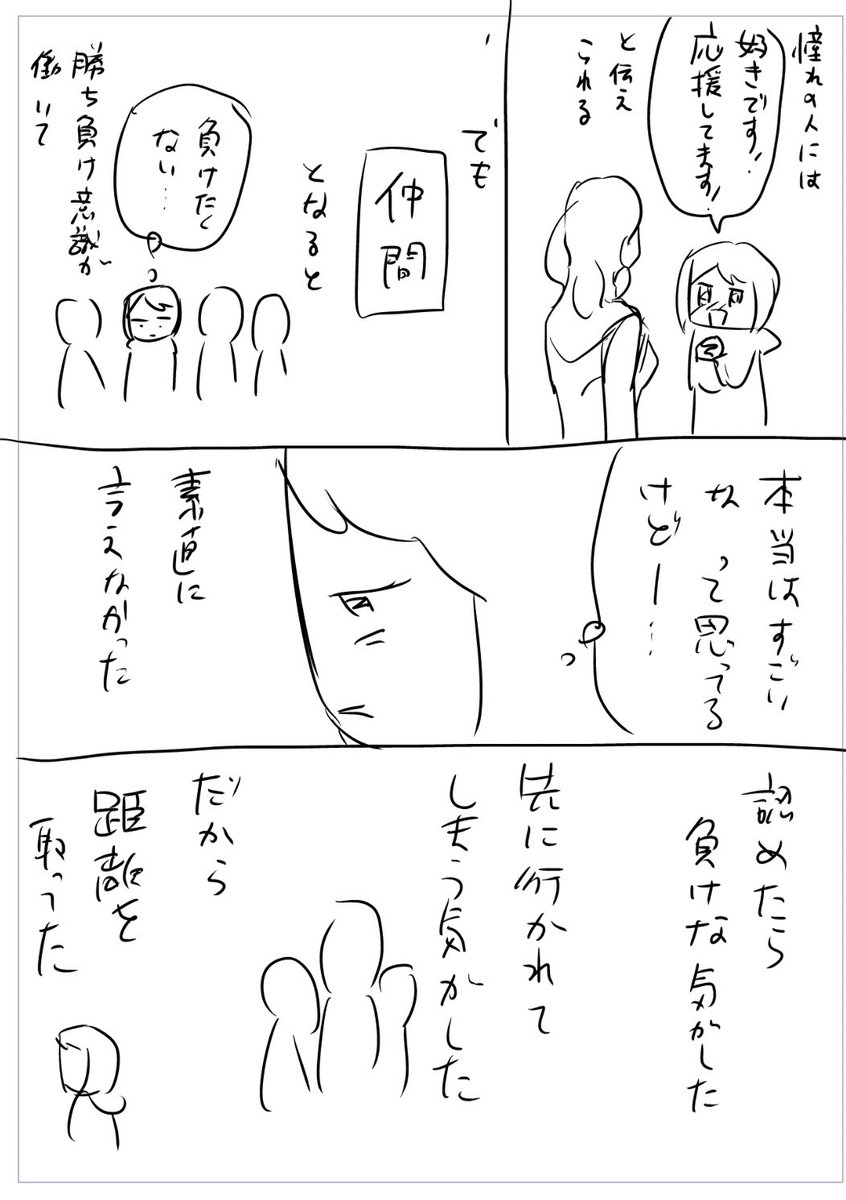 憧れの人には
好きです!
応援してます!
と伝え
られる
でも
仲間
となると
負けたく
ない…
勝ち負け意識が
働いて
本当はすごい
なって思ってる
けどー…
素直に
言えなかった
認めたら
負けな気がした
先に行かれて
しまう気がした
だから
距離を
取った